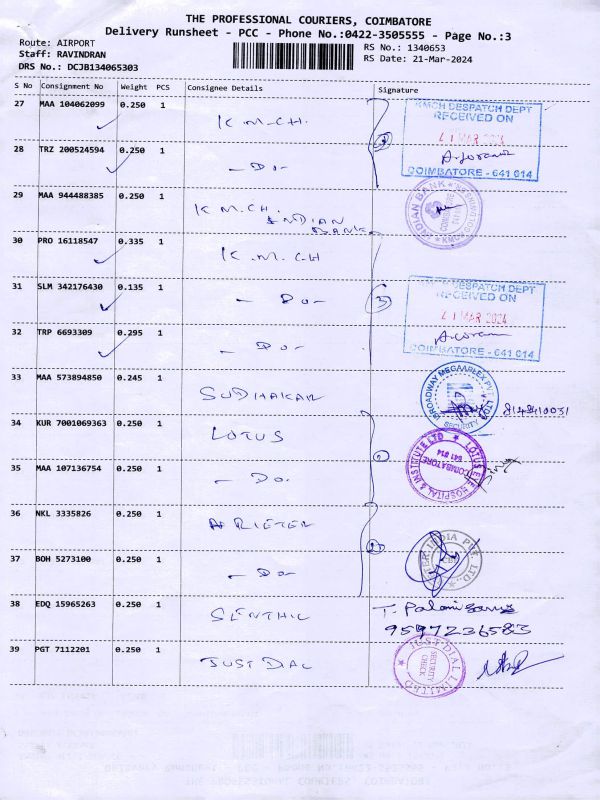 THE PROFESSIONAL COURIERS, COIMBATORE
Delivery Runsheet - PCC - Phone No.:0422-3505555 - Page No.:3
Route: AIRPORT
RS No.: 1340653
Staff: RAVINDRAN
RS Date: 21-Mar-2024
DRS No.: DCJB134065303
S No Consignment No Weight PCS Consignee Details Signature
27 MAA 104062099 0.250 1 K M.CH. KMCH DESPATCH DEPT
RECEIVED ON
21 MAR 2024
COIMBATORE - 641 014
28 TRZ 200524594 0.250 1 - Do -
29 MAA 944488385 0.250 1 K M.CH. INDIAN BANK INDIAN BANK
30 PRO 16118547 0.335 1 K.M.C.H
31 SLM 342176430 0.135 1 - Do - 3 KMCH DESPATCH DEPT
RECEIVED ON
21 MAR 2024
COIMBATORE - 641 014
32 TRP 6693309 0.295 1 - Do -
33 MAA 573894850 0.245 1 SUDHAKAR BROADWAY MEGAAPLEX PVT LTD SECURITY 8148410031
34 KUR 7001069363 0.250 1 LOTUS LOTUS EYE HOSPITAL & INSTITUTE LTD COIMBATORE 641 014
35 MAA 107136754 0.250 1 - Do.
36 NKL 3335826 0.250 1 RIETER
37 BOH 5273100 0.250 1 - Do - INDIA PVT. LTD.
38 EDQ 15965263 0.250 1 SENTHIL T. Palanisamy
9597236583
39 PGT 7112201 0.250 1 JUST DIAL JUST DIAL LIMITED SECURITY CHECK